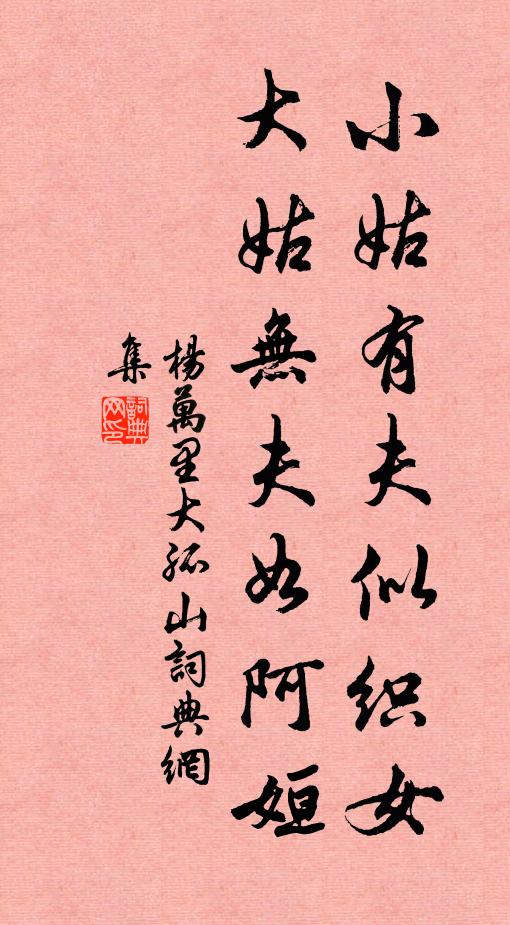 小姑有夫似织女
大姑無夫如阿姮
楊萬里大孤山詞典網
集
詞典
网印